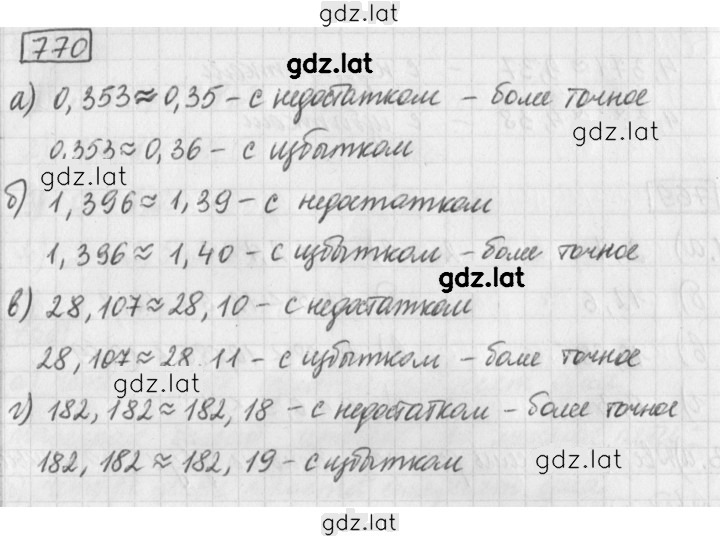 gdz.lat
770
gdz.lat
а) 0,353≈0,35 – с недостатком – более точное
gdz.lat
0.353≈0,36 – с избытком
gdz.lat
б) 1,396≈1,39 – с недостатком
1,396≈1,40 – с избытком – более точное
gdz.lat
в) 28,107≈28,10 – с недостатком
28,107≈28.11 – с избытком – более точное
gdz.lat
г) 182,182≈182,18 – с недостатком – более точное
182,182≈182,19 – с избытком
gdz.lat
gdz.lat